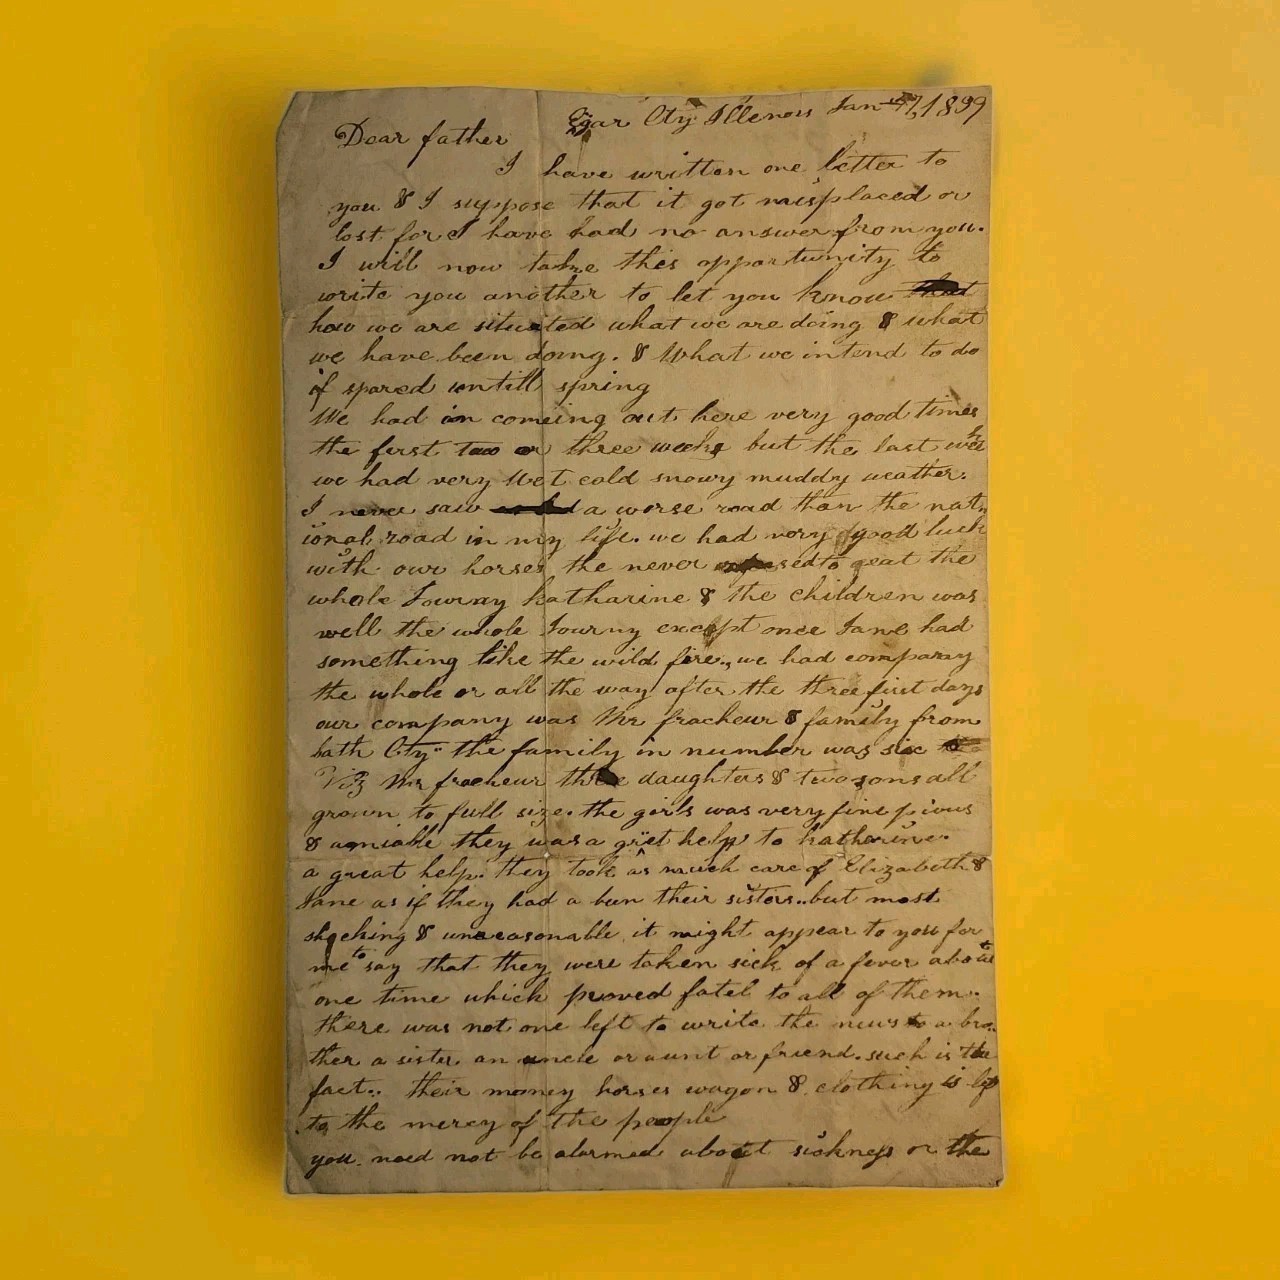 Cty Illenois Jan 1839
Dear father
I have written one letter to
you & I suppose that it got misplaced or
lost for I have had no answer from you.
I will now take this opportunity to
write you another to let you know that
how we are situated what we are doing & what
we have been doing. & What we intend to do
if spared untill spring
We had in comeing out here very good times
the first two or three weeks but the last
we had very Wet cold snowy muddy weather.
I never saw a worse road than the nat
ional road in my life. we had very good luck
with our horses the never to geat the
whole Journy Katharine & the children was
well the whole Journy except once Jane had
something like the wild fire., we had company
the whole or all the way after the three first days
our company was Mr fracheur & family from
bath Cty" the family in number was six
Viz Mr fracheur three daughters & two sons all
grown to full size. the girls was very fine pious
& amiable they was a gret help to Katharine.
a great help. they took as much care of Elizabeth &
Jane as if they had a bun their sisters.. but most
shocking & unreasonable it might appear to you for
me to say that they were taken sick of a fever about
one time which proved fatel to all of them.
there was not one left to write the news to a bro
ther a sister an uncle or aunt or friend. such is the
fact.. their money horses wagon & clothing is left
to the mercy of the people
you need not be alarmed about sickness or the